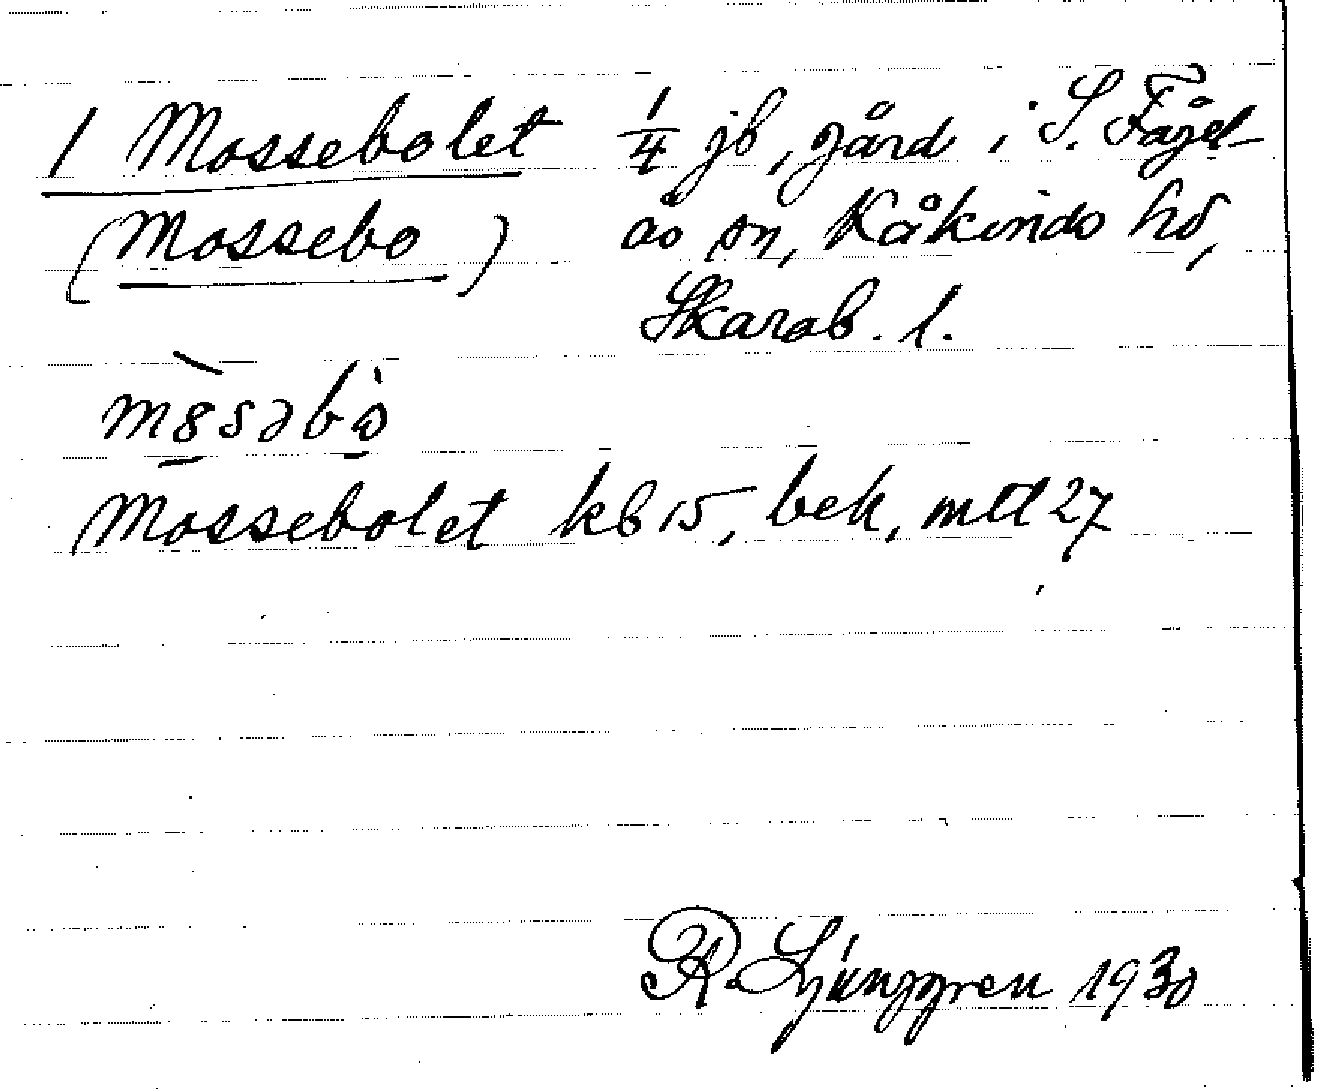 1 Mossebolet 1/4 jb, gård i S. Fågel-
(Mossebo) ås sn, Kåkinds hd,
Skarab. l.
Mossebolet kb 15, bek, mtl 27
R. Ljunggren 1930